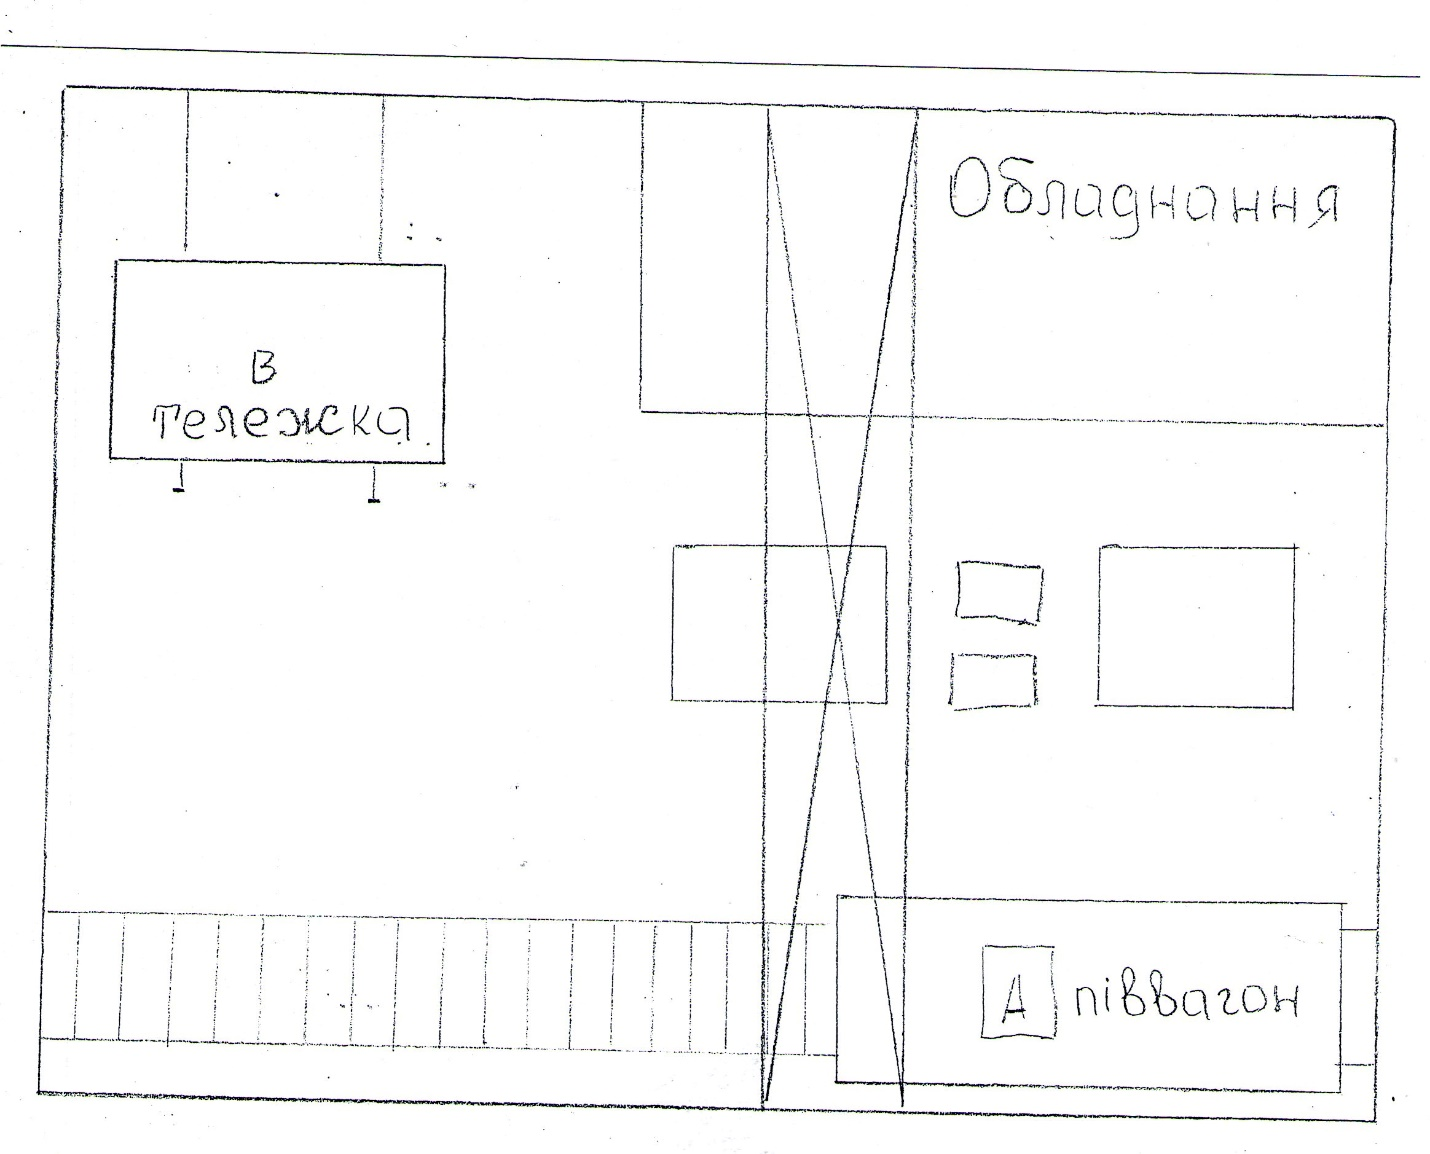 Обладнання
В
тележка
А піввагон